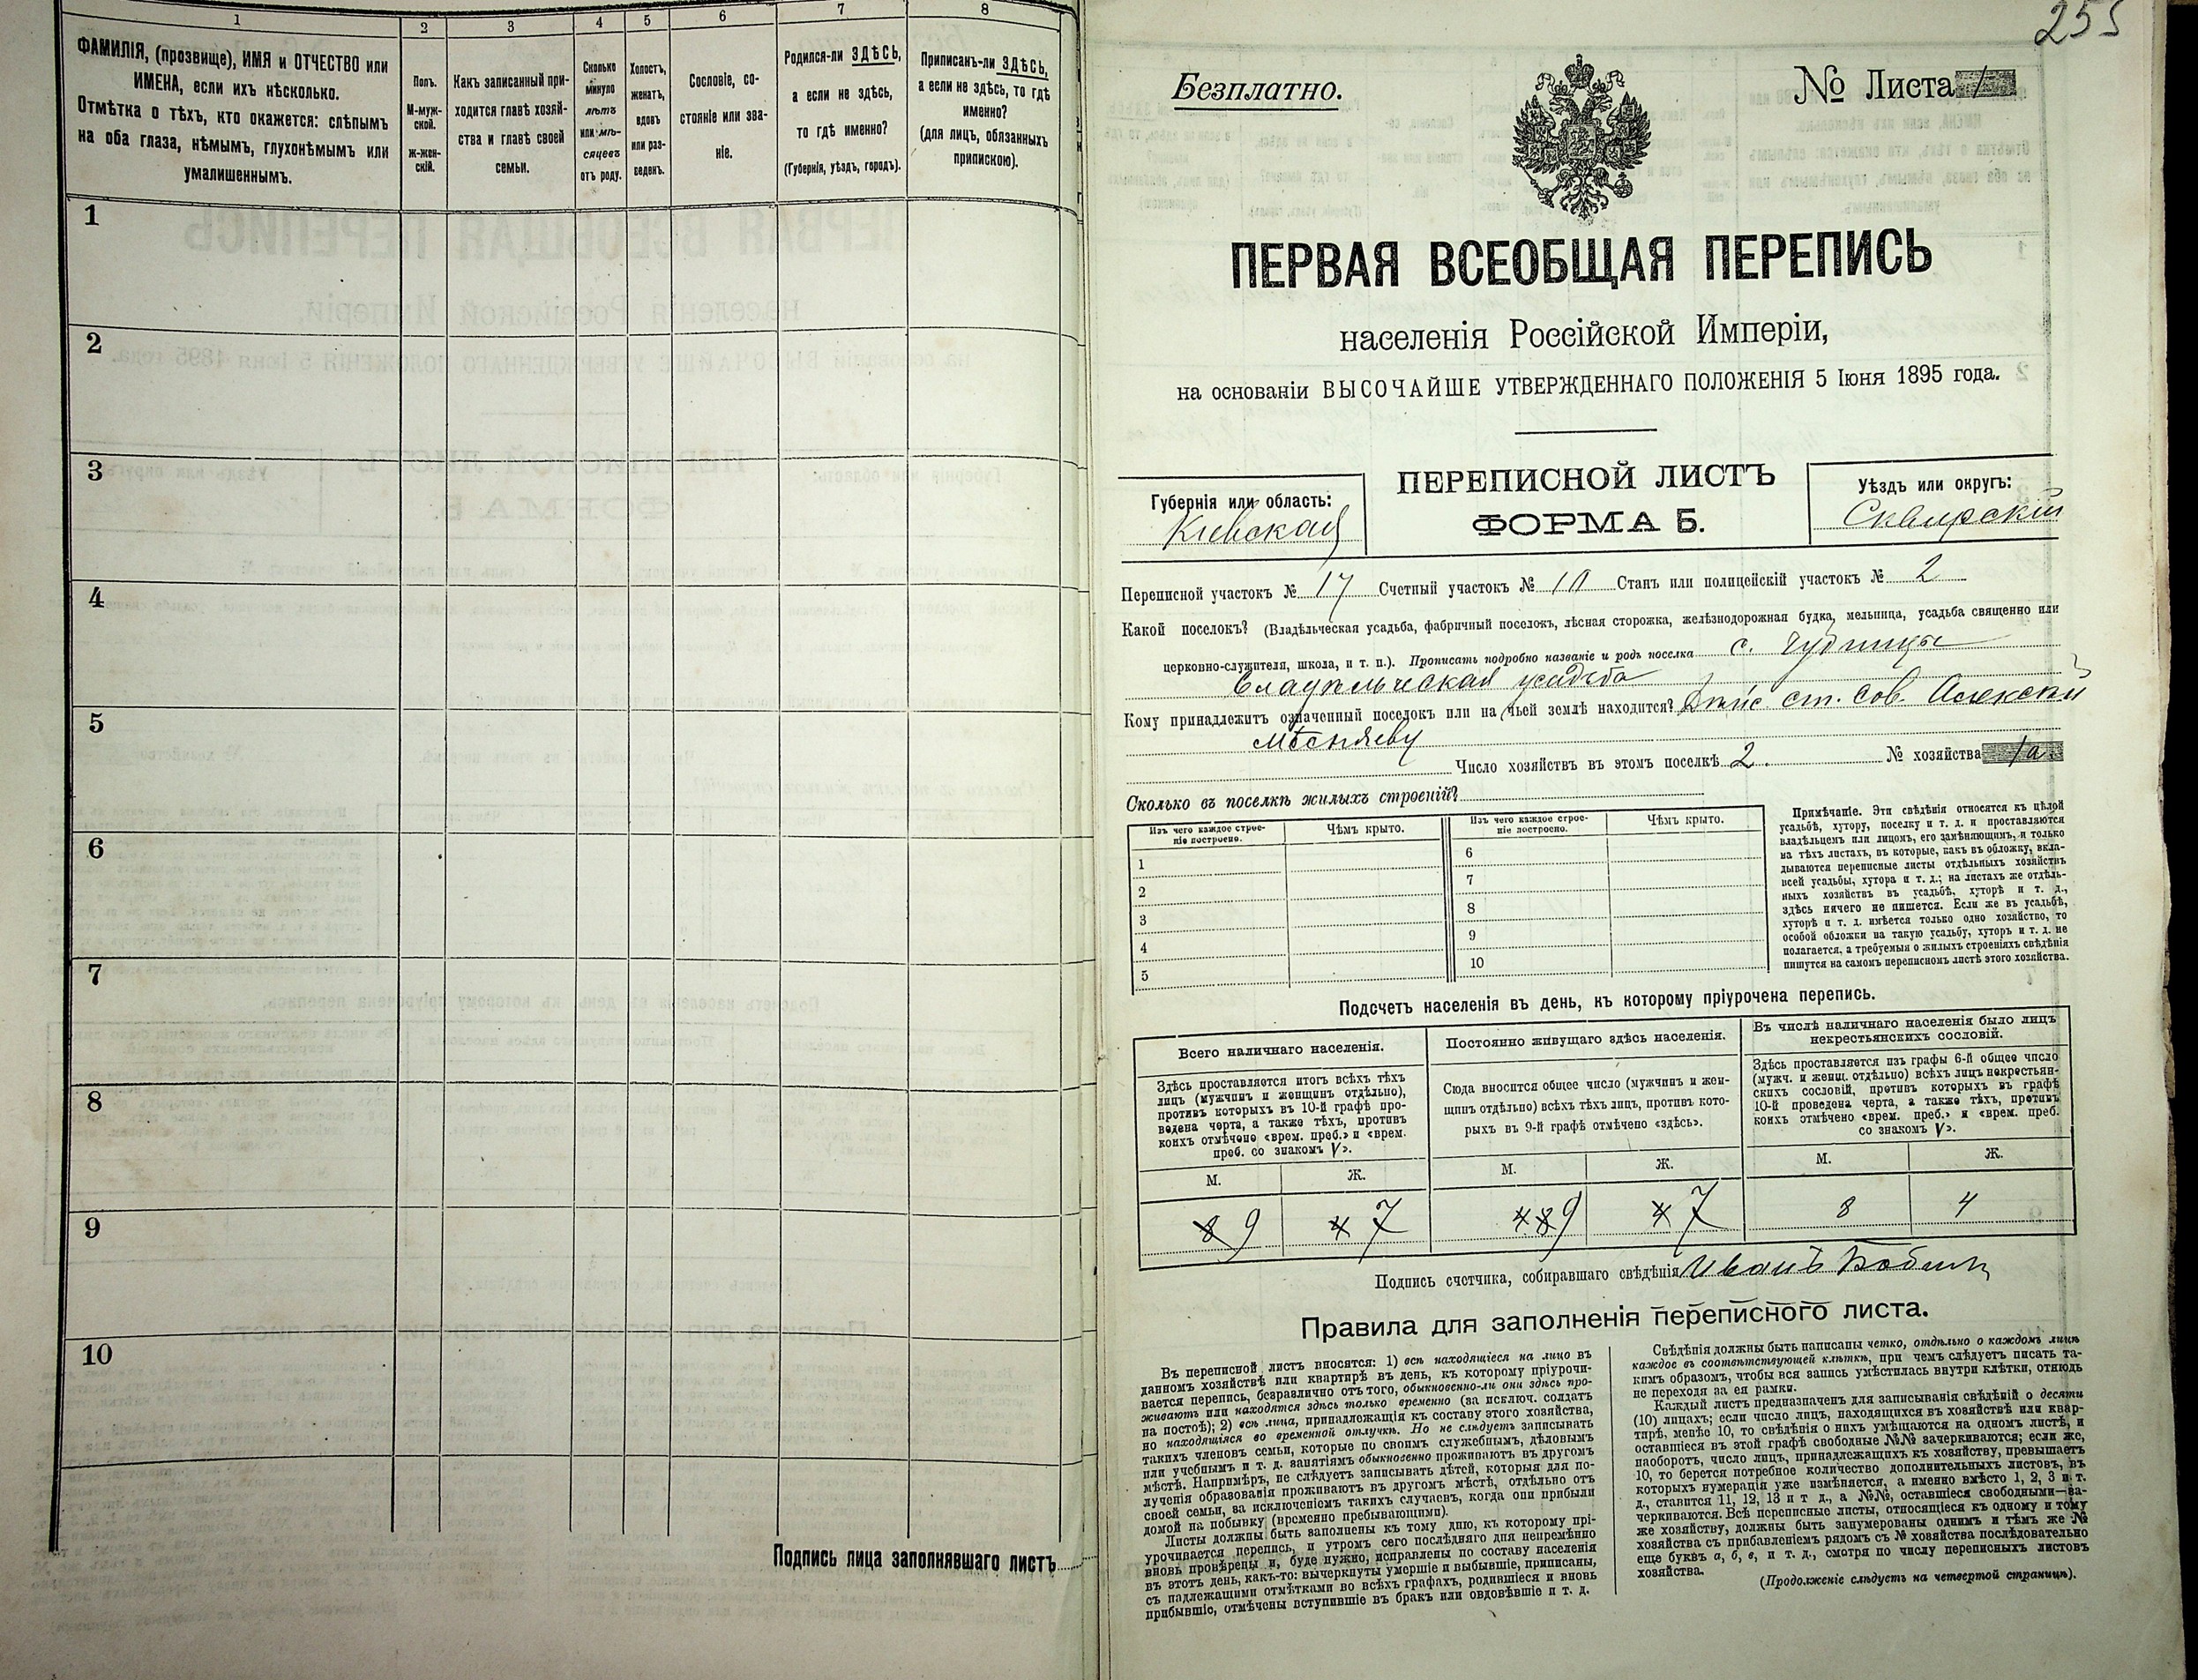 1
2
3
4
5
6
7
8
ФАМИЛІЯ, (прозвище), ИМЯ и ОТЧЕСТВО или
ИМЕНА, если ихъ нѣсколько.
Отмѣтка о тѣхъ, кто окажется: слѣпымъ
на оба глаза, нѣмымъ, глухонѣмымъ или
умалишеннымъ.
Полъ.
М-муж-
ской.
Ж-жен-
скій.
Какъ записанный при-
ходится главѣ хозяй-
ства и главѣ своей
семьи.
Сколько
минуло
лѣтъ
или мѣ-
сяцевъ
отъ роду.
Холостъ,
женатъ,
вдовъ
или раз-
веденъ.
Сословіе, со-
стояніе или зва-
ніе.
Родился-ли ЗДѢСЬ,
а если не здѣсь,
то гдѣ именно?
(Губернія, уѣздъ, городъ).
Приписанъ-ли ЗДѢСЬ,
а если не здѣсь, то гдѣ
именно?
(для лицъ, обязанныхъ
припискою).
1
2
3
4
5
6
7
8
9
10
Подпись лица заполнявшаго листъ
255
Безплатно.
№ Листа 1
ПЕРВАЯ ВСЕОБЩАЯ ПЕРЕПИСЬ
населенія Россійской Имперіи,
на основаніи ВЫСОЧАЙШЕ УТВЕРЖДЕННАГО ПОЛОЖЕНІЯ 5 Іюня 1895 года.
Губернія или область:
Кіевская
ПЕРЕПИСНОЙ ЛИСТЪ
ФОРМА Б.
Уѣздъ или округъ:
Сквирскій
Переписной участокъ № 17 Счетный участокъ № 10 Станъ или полицейскій участокъ № 2
Какой поселокъ? (Владѣльческая усадьба, фабричный поселокъ, лѣсная сторожка, желѣзнодорожная будка, мельница, усадьба священно или
церковно-служителя, школа, и т. п.). Прописать подробно названіе и родъ поселка с.
Владѣльческая усадьба
Кому принадлежитъ означенный поселокъ или на чьей землѣ находится? Дѣйс. ст. сов. Алексѣй
Мѣсняеву
Число хозяйствъ въ этомъ поселкѣ 2. № хозяйства 1а.
Сколько въ поселкѣ жилыхъ строеній?
Изъ чего каждое строе-
ніе построено.
Чѣмъ крыто.
Изъ чего каждое строе-
ніе построено.
Чѣмъ крыто.
1
2
3
4
5
6
7
8
9
10
Примѣчаніе. Эти свѣдѣнія относятся къ цѣлой
усадьбѣ, хутору, поселку и т. д. и проставляются
владѣльцемъ или лицомъ, его замѣняющимъ, и только
на тѣхъ листахъ, въ которые, какъ въ обложку, вкла-
дываются переписные листы отдѣльныхъ хозяйствъ
всей усадьбы, хутора и т. д.; на листахъ же отдѣль-
ныхъ хозяйствъ въ усадьбѣ, хуторѣ и т. д.,
здѣсь ничего не пишется. Если же въ усадьбѣ,
хуторѣ и т. д. имѣется только одно хозяйство, то
особой обложки на такую усадьбу, хуторъ и т. д. не
полагается, а требуемыя о жилыхъ строеніяхъ свѣдѣнія
пишутся на самомъ переписномъ листѣ этого хозяйства.
Подсчетъ населенія въ день, къ которому пріурочена перепись.
Всего наличнаго населенія.
Постоянно живущаго здѣсь населенія.
Въ числѣ наличнаго населенія было лицъ
некрестьянскихъ сословій.
Здѣсь проставляется итогъ всѣхъ тѣхъ
лицъ (мужчинъ и женщинъ отдѣльно),
противъ которыхъ въ 10-й графѣ про-
ведена черта, а также тѣхъ, противъ
коихъ отмѣчено «врем. преб.» и «врем.
преб. со знакомъ V».
Сюда вносится общее число (мужчинъ и жен-
щинъ отдѣльно) всѣхъ тѣхъ лицъ, противъ кото-
рыхъ въ 9-й графѣ отмѣчено «здѣсь».
Здѣсь проставляется изъ графы 6-й общее число
(мужч. и женщ. отдѣльно) всѣхъ лицъ некрестьян-
скихъ сословій, противъ которыхъ въ графѣ
10-й проведена черта, а также тѣхъ, противъ
коихъ отмѣчено «врем. преб.» и «врем. преб.
со знакомъ V».
М.
Ж.
М.
Ж.
М.
Ж.
8 9
4 7
4 8 9
4 7
8
4
Подпись счетчика, собиравшаго свѣдѣнія Иванъ
Правила для заполненія переписного листа.
Въ переписной листъ вносятся: 1) всѣ находящіеся на лицо въ
данномъ хозяйствѣ или квартирѣ въ день, къ которому пріурочи-
вается перепись, безразлично отъ того, обыкновенно-ли они здѣсь про-
живаютъ или находятся здѣсь только временно (за исключ. солдатъ
на постоѣ); 2) всѣ лица, принадлежащія къ составу этого хозяйства,
но находящіяся во временной отлучкѣ. Но не слѣдуетъ записывать
такихъ членовъ семьи, которые по своимъ служебнымъ, дѣловымъ
или учебнымъ и т. д. занятіямъ обыкновенно проживаютъ въ другомъ
мѣстѣ. Напримѣръ, не слѣдуетъ записывать дѣтей, которыя для по-
лученія образованія проживаютъ въ другомъ мѣстѣ, отдѣльно отъ
своей семьи, за исключеніемъ такихъ случаевъ, когда они прибыли
домой на побывку (временно пребывающими).
Листы должны быть заполнены къ тому дню, къ которому прі-
урочивается перепись, и утромъ сего послѣдняго дня непремѣнно
вновь провѣрены и, буде нужно, исправлены по составу населенія
въ этотъ день, какъ-то: вычеркнуты умершіе и выбывшіе, приписаны,
съ надлежащими отмѣтками во всѣхъ графахъ, родившіеся и вновь
прибывшіе, отмѣчены вступившіе въ бракъ или овдовѣвшіе и т. д.
Свѣдѣнія должны быть написаны четко, отдѣльно о каждомъ лицѣ
каждое въ соотвѣтствующей клѣткѣ, при чемъ слѣдуетъ писать та-
кимъ образомъ, чтобы вся запись умѣстилась внутри клѣтки, отнюдь
не переходя за ея рамки.
Каждый листъ предназначенъ для записыванія свѣдѣній о десяти
(10) лицахъ; если число лицъ, находящихся въ хозяйствѣ или квар-
тирѣ, менѣе 10, то свѣдѣнія о нихъ умѣщаются на одномъ листѣ, и
оставшіеся въ этой графѣ свободные №№ зачеркиваются; если же,
наоборотъ, число лицъ, принадлежащихъ къ хозяйству, превышаетъ
10, то берется потребное количество дополнительныхъ листовъ, въ
которыхъ нумерація уже измѣняется, а именно вмѣсто 1, 2, 3 и т.
д., ставится 11, 12, 13 и т д., а №№, оставшіеся свободными—за-
черкиваются. Всѣ переписные листы, относящіеся къ одному и тому
же хозяйству, должны быть занумерованы однимъ и тѣмъ же №
хозяйства съ прибавленіемъ рядомъ съ № хозяйства послѣдовательно
еще буквъ а, б, в, и т. д., смотря по числу переписныхъ листовъ
хозяйства.
(Продолженіе слѣдуетъ на четвертой страницѣ).